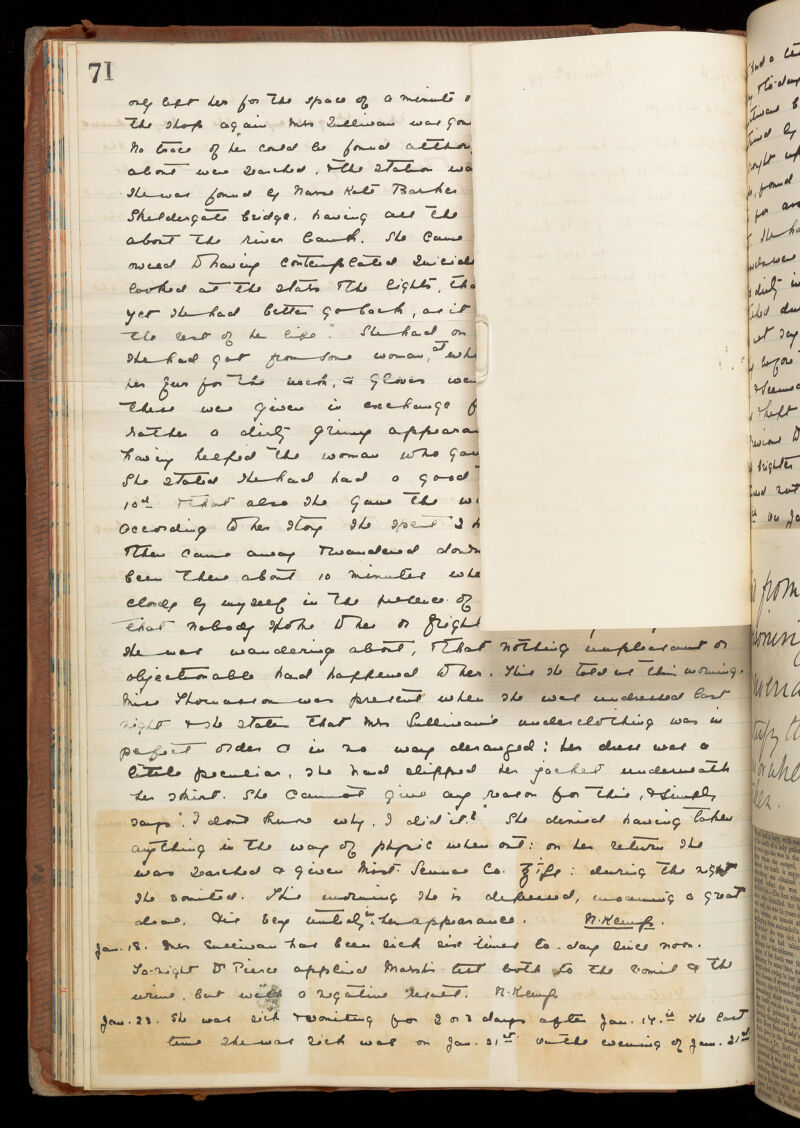 71
only left her for the space of a minute
the shop again Mrs Sullivan was gon
No trace of her could be found althou
about were searched, & the station wa
She was found by Nurse Kate Barker
Skeldergate bridge, having all the
about the river bank. She came
owned to having contemplated Suicide
looked at the stars & the lights, tho
yet she had better go back, as it
the rest of her life". She had on
she had got from some woman, at whi
her fur for the neck, & gloves wer
these were given in exchange f
rather a dirty grimy appearan
having helped the woman who gav
She stated she had had a good
10d & that also she gave the wo
According to her story she spent 2 h
& then came away & wandered down
been there about 10 minutes whe
closely by myself in the presence of
that nobody spoke to her or fright
she was wandering about, & that nothing unpleasant or
objectionable had happened to her. This she told us this morning.
Miss Thomasson was present when she was undressed last
night & she states that Mrs Sullivan's underclothing was in
perfect order & in no way deranged: her dress was a
little peculiar, she had slipped her jacket underneath
her skirt. She cannot give any reason for this, & simply
says "I dont know why I did it." She denied having taken
anything in the way of physic when out: on her return she
was searched & given Mist. Sennae Co. : during the night
she vomited. This morning she is depressed, moaning a great
deal, & is very untidy in her appearance. N. Kemp.
Jan. 18. Mrs Sullivan has been sick six times to-day since noon.
To-night Dr Pierce applied Marsh's test both to the vomit & the
urine, but with a negative result. N. Kemp
Jan. 23. She was sick & vomiting for 2 or 3 days after Jan. 17th the last
time she was sick was on Jan. 21st. On the evening of Jan. 21st